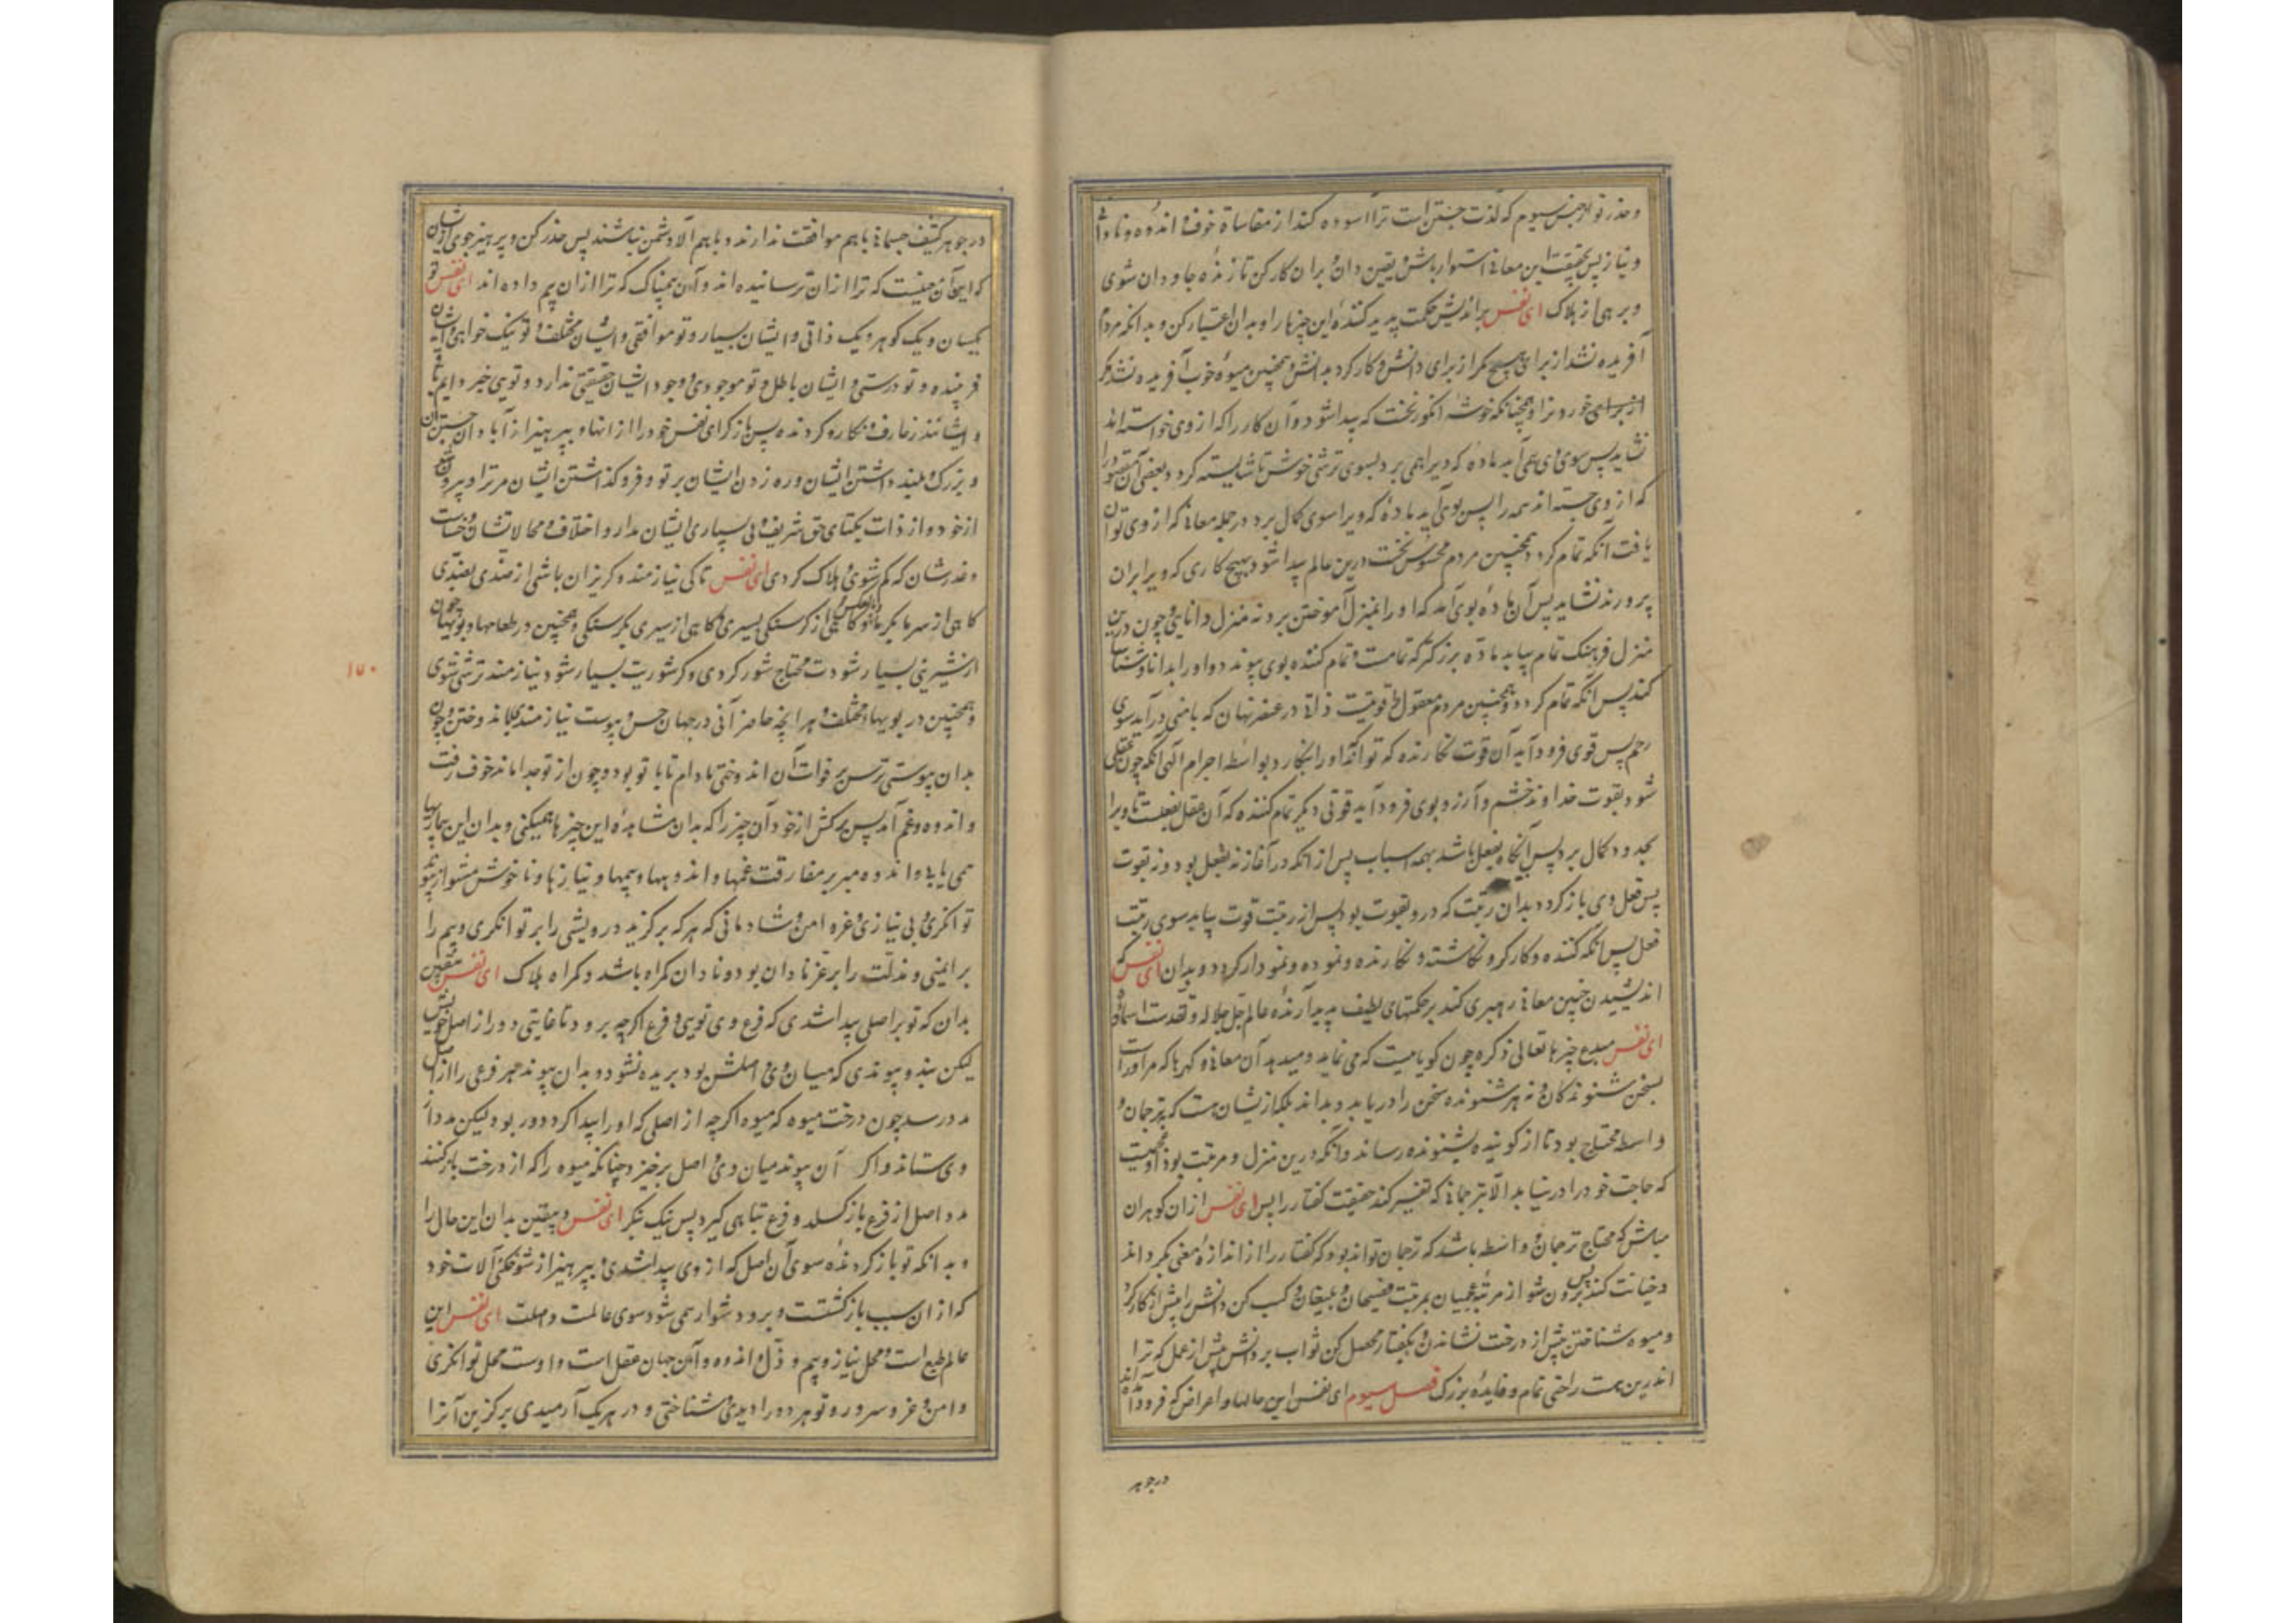 و حذر تو از جنس سیوم که لذت جستن است ترا آسوده کند از مقاساة خوف و اندوه و ناداری
و نیاز پس بحقیقت این معانی استوار باش و یقین دان و بران کار کن تا زنده جاودان شوی
و برهی از هلاک ای نفس براندیش حکمت پدید کنندۀ این چیزها را و بدان اعتبار کن و بدانکه مردم
آفریده نشد از برای هیچ مگر از برای دانش و کار کرد بدانش و همچنین میوۀ خوب آفریده نشد مگر
از برای خورونده و همچنانکه خوشۀ انگور نخست که پیدا شود وآن کار را که از وی خواسته اند
نشاید پس سوی وی همی آید ماده که ویرا همی برد بسوی ترشی خوش تا شایسته گردد بعضی آن مقصود را
که از وی جسته اند همه را پس بوی آید مادۀ که ویرا سوی کمال برد در جمله معانی که از وی توان
یافت آنگه تمام گردد همچنین مردم محسوس نخست درین عالم پیدا شود و بهیچ کاری که ویرا بران
پرورند نشاید پس آن مادۀ بوی آید که او را بمنزل آموختن برد نه منزل دانایی و چون درین
منزل فرهنگ تمام بیابد مادۀ بزرگتر که تمامست و تمام کننده بوی پیوندد و او را بدانا و شناسا
کند پس آنگه تمام گردد و همچنین مردم معقول قوتیست ذاتی در عنصر نهان که با منی درآید سوی
رحم پس قوی فرود آید آن قوت نگارنده که تواند او را بنگارد بواسطه اجرام آلهی آنگه چون تمثیلی
شود بقوت خداوند خشم و آرزو بوی فرود آید قوتی دیگر تمام کننده که آن عقل بفعلست تا ویرا
بحدود کمال برد پس آنگاه بفعل باشد بهمه اسباب پس از آنکه در آغاز نه بفعل بود و نه بقوت
پس فعل وی باز گردد بدان رتبت که در و بقوت بود پس از رتبت قوت بیاید سوی رتبت
فعل پس آنگه کننده و کارگر و نگاشته و نگارنده و نموده و نمودار گردد و بدان ای نفس که
اندیشیدن چنین معانی رهبری کند بر حکمتهای لطیف پدید آرندۀ عالم جل جلاله و تقدست اسماؤه
ای نفس مبدع چیزها تعالی ذکره چون گویاییست که می نماید و میدهد آن معانی و گهرها که مر او راست
بسخن شنوندگان و نه هر شنونده سخن را دریابد و بداند بلکه از یشان هست که بترجمان و
واسطه محتاج بود تا از گوینده بشنونده رساند و آنکه درین منزل و مرتبت بود اعجمیست
که حاجت خود را درنیابد الا بترجمانی که تفسیر کند حقیقت گفتار را پس ای نفس ازان گوهران
مباش که محتاج ترجمان و واسطه باشد که ترجمان تواند بود که گفتار را از اندازۀ معنی بگرداند
و خیانت کند پس برون شو از مرتبۀ عجمیان بمرتبت فصیحان و بلیغان و کسب کن دانش را پیش از کار کرد
و میوه شناختن پیش از درخت نشاندن و بگفتار محصل کن ثواب بر دانش پیش از عمل که ترا
اندرین هست راحتی تمام و فایدۀ بزرگ فصل سیوم ای نفس این حالها و اعراض که فرود آمده اند
در جوهر
در جوهر کثیف جسمانی باهم موافقت ندارند و باهم الا دشمن نباشند پس حذر کن و پرهیز جوی ازیشان
که اینجا آن چیست که ترا ازان ترسانیده اند و آن بیمناک که ترا ازان بیم داده اند ای نفس تو
یکسان و یک گوهر و یک ذاتی و ایشان بسیار و تو موافقی و ایشان مختلف و تو نیک خواهی و ایشان
فریبنده و تو درستی و ایشان باطل و تو موجودی و وجود ایشان حقیقتی ندارد و تویی خیر دایم
و ایشانند زخارف و نگاره کرده پس باز گرای نفس خود را از آنها و بپرهیز از آبادان جستن
و بزرگ و بلند داشتن ایشان و ره زدن ایشان بر تو و فرو گذاشتن ایشان مر ترا و بیرون
از خود و از ذات یکتای حق شریف وی بسپاری ایشان مدار و اختلاف و محالاتشان و خساست
و غدرشان که گم شوی و هلاک گردی ای نفس تا کی نیازمند و گریزان باشی از ضدی بضدی
گاهی از سرما بگرما و گاهی از گرسنگی بسیری و گاهی از سیری بگرسنگی و همچنین در طعامها و بویها چون
از شیرینی بسیار شودت محتاج شور گردی و گر شوریت بسیار شود نیازمند ترشی شوی
و همچنین در بویهاء مختلف و هر آنچه حاضر آنی در جهان حس و پیوست نیازمند باندوختن و چون
بدان پیوستی ترسی بر فوات آن اندوختی مادام تا با تو بود و چون از تو جدا ماند خوف رفت
و اندوه و غم آمد پس برکش از خود آن چیز را که بدان مشاهدۀ این چیزها همیکنی و بدان این بیماریها
همی یابی و اندوه مبر بر مفارقت غمها و اندوهها و بیمها و نیازها و ناخوش مشو از پیوند
توانگری و بی نیازی و عزه امن و شادمانی که هر که برگزیند درویشی را بر توانگری و بیم را
بر ایمنی و مذلت را بر عز نادان بود و نادان گمراه باشد و گمراه هلاک ای نفس بیقین
بدان که تو بر اصلی پیدا شدی که فرع وی تویی و فرع اگرچه برود تا غایتی دور از اصل خویش
لیکن بند و پیوندی که میان وی و اصلش بود بریده نشود و بدان پیوند هر فرعی را از اصل
مدد رسد چون درخت میوه که میوه اگرچه از اصلی که او را پیدا کرد دور بود لیکن مدد از
وی ستاند و اگر آن پیوند میان وی و اصل برخیزد چنانکه میوه را که از درخت باز کنند
مدد اصل از فرع باز گسلد و فرع تباهی گیرد پس نیک بنگر ای نفس و بیقین بدان این حال را
و بدانکه تو باز گردندۀ سوی آن اصل که از وی پیدا شدی و بپرهیز از شوخگنی آلات خود
که ازان سبب بازگشتت و برود شوار همی شود سوی عالمت و اصلت ای نفس این
عالم طبع است و محل نیاز و بیم و ذل و اندوه و آن جهان عقل است و اوست محل توانگری
و امن و عز و سرور و تو هر دو را دیدی و شناختی و در هر یک آرمیدی برگزین آنرا
۱۷۰